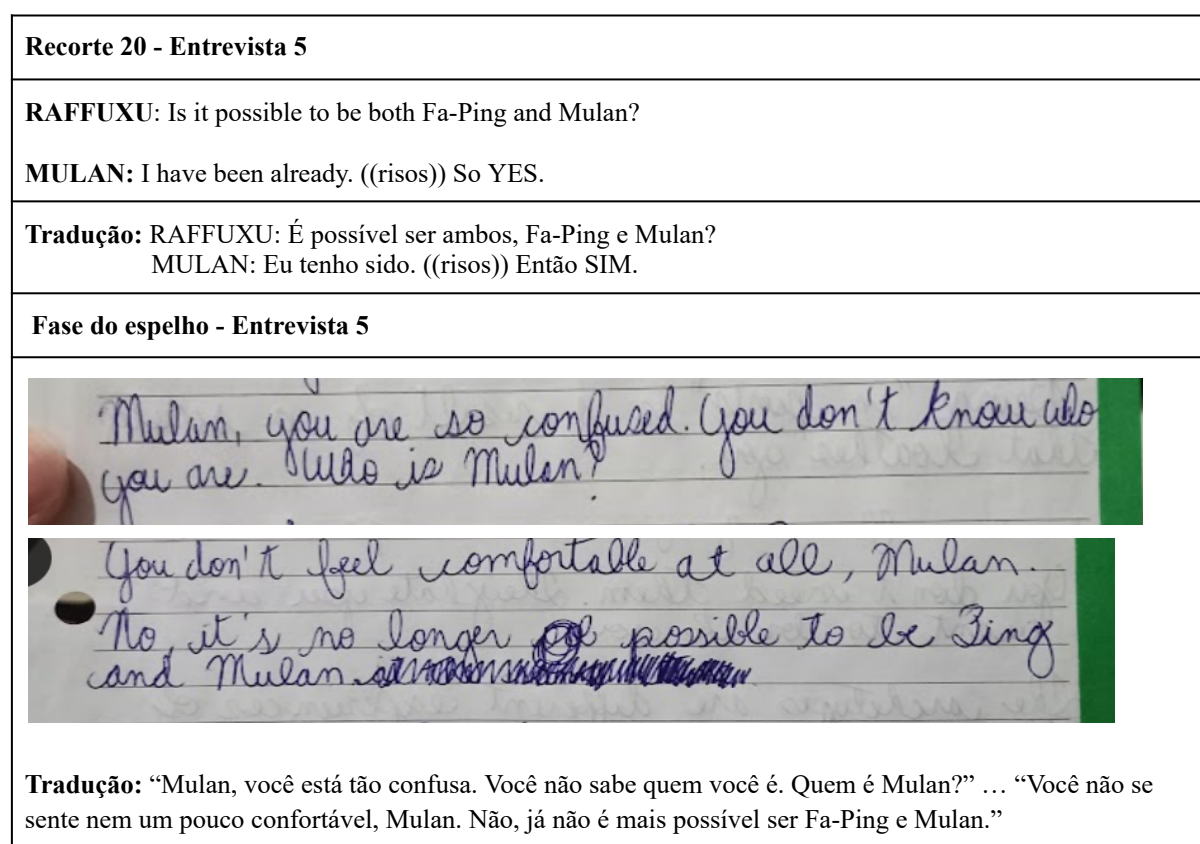 Recorte 20 - Entrevista 5
RAFFUXU: Is it possible to be both Fa-Ping and Mulan?
MULAN: I have been already. ((risos)) So YES.
Tradução: RAFFUXU: É possível ser ambos, Fa-Ping e Mulan?
MULAN: Eu tenho sido. ((risos)) Então SIM.
Fase do espelho - Entrevista 5
Mulan, you are so confused. You don't know who
you are. Who is Mulan?
You don't feel comfortable at all, Mulan.
No, it's no longer possible to be Ping
and Mulan
Tradução: “Mulan, você está tão confusa. Você não sabe quem você é. Quem é Mulan?” … “Você não se
sente nem um pouco confortável, Mulan. Não, já não é mais possível ser Fa-Ping e Mulan.”